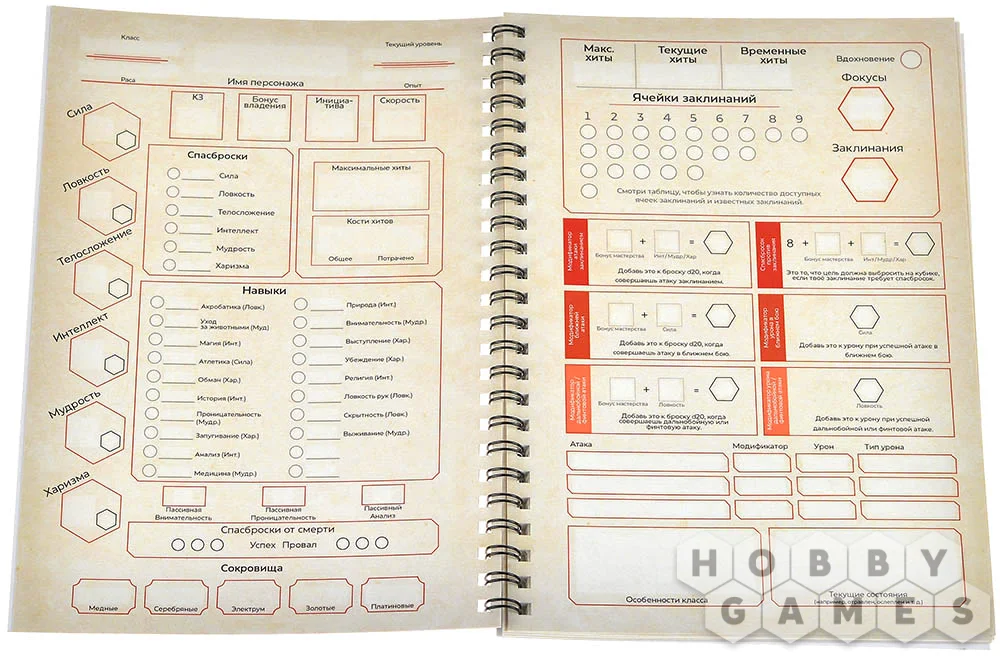 Класс
Текущий уровень
Раса
Имя персонажа
Опыт
Сила
Ловкость
Телосложение
Интеллект
Мудрость
Харизма
КЗ
Бонус
владения
Инициа-
тива
Скорость
Спасброски
Сила
Ловкость
Телосложение
Интеллект
Мудрость
Харизма
Максимальные хиты
Кости хитов
Общее Потрачено
Навыки
Акробатика (Ловк.)
Уход
за животными (Муд)
Магия (Инт.)
Атлетика (Сила)
Обман (Хар.)
История (Инт.)
Проницательность
(Мудр.)
Запугивание (Хар.)
Анализ (Инт.)
Медицина (Мудр.)
Природа (Инт.)
Внимательность (Мудр.)
Выступление (Хар.)
Убеждение (Хар.)
Религия (Инт.)
Ловкость рук (Ловк.)
Скрытность (Ловк.)
Выживание (Мудр.)
Пассивная
Внимательность
Пассивная
Проницательность
Пассивный
Анализ
Спасброски от смерти
Успех Провал
Сокровища
Медные
Серебряные
Электрум
Золотые
Платиновые
Макс.
хиты
Текущие
хиты
Временные
хиты
Вдохновение
Фокусы
Заклинания
Ячейки заклинаний
1 2 3 4 5 6 7 8 9
Смотри таблицу, чтобы узнать количество доступных
ячеек заклинаний и известных заклинаний.
Модификатор
атаки
заклинанием
+ =
Бонус мастерства Инт/Мудр/Хар
Добавь это к броску d20, когда
совершаешь атаку заклинанием.
Спасбросок
против
заклинания
8 + + =
Бонус мастерства Инт/Мудр/Хар
Это то, что цель должна выбросить на кубике,
если твоё заклинание требует спасбросок.
Модификатор
ближней
атаки
+ =
Бонус мастерства Сила
Добавь это к броску d20, когда
совершаешь атаку в ближнем бою.
Модификатор
урона в
ближнем бою
Сила
Добавь это к урону при успешной атаке в
ближнем бою.
Модификатор
дальнобойной /
финтовой атаки
+ =
Бонус мастерства Ловкость
Добавь это к броску d20, когда
совершаешь дальнобойную или
финтовую атаку.
Модификатор урона
дальнобойной /
финтовой атаки
Ловкость
Добавь это к урону при успешной
дальнобойной или финтовой атаке.
Атака Модификатор Урон Тип урона
Особенности класса
Текущие состояния
(например, отравлен, ослеплен и т. д.)
HOBBY
GAMES